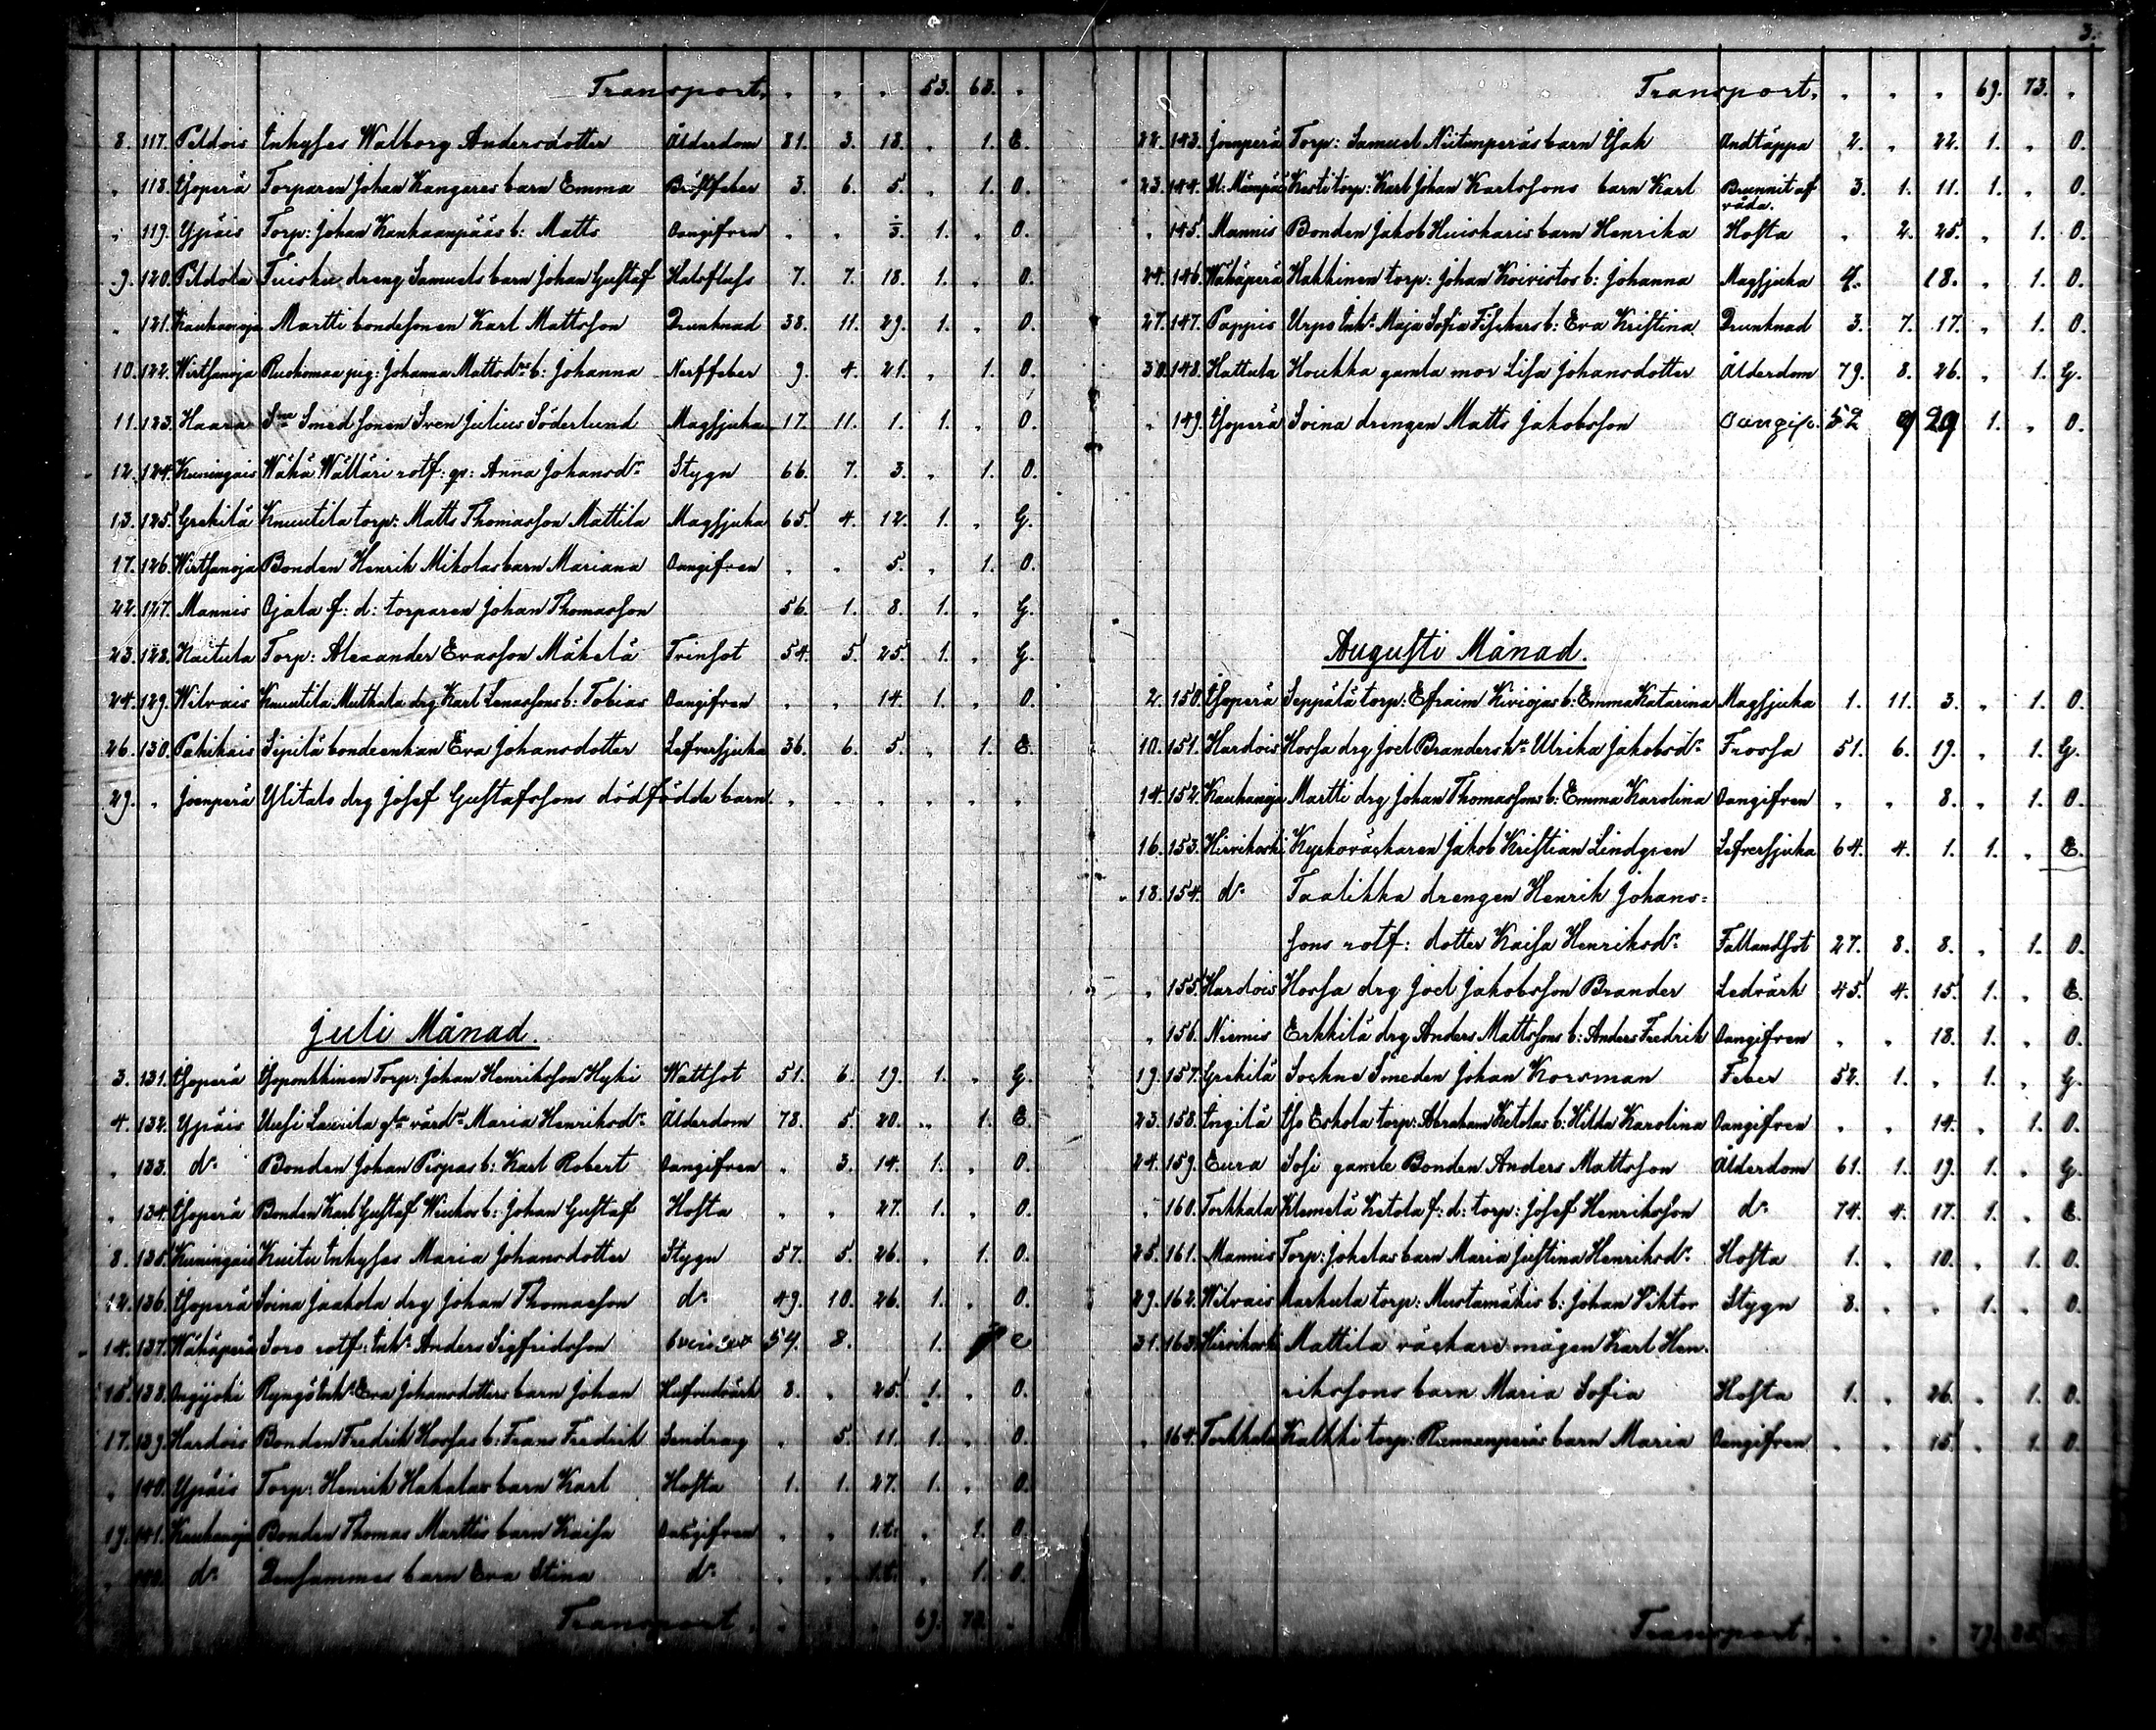 3.
Transport. " " " 53. 63. "
8. 117. Peldois Inhyses Walborg Andersdotter Ålderdom 81. 3. 18. " 1. E.
" 118. Isoperä Torparen Johan Kangares barn Emma Bröstfeber 3. 6. 5. " 1. O.
" 119. Ypäis Torp: Johan Kanhaanpääs b: Matts Oangifven " " 1/3. 1. " O.
9. 120. Dreng Samuels barn Johan Gustaf Halsflass 7. 7. 18. 1. " O.
" 121. Kauhanoja Martti bondesonen Karl Mattsson Drunknad 38. 11. 29. 1. " O.
10. 122. Wirtsanoja pig: Johanna Mattsdrs b: Johanna Nerffeber 9. 4. 21. " 1. O.
11. 123. Haara Smed sonen Sven Julius Söderlund Magsjuka 17. 11. 1. 1. " O.
12. 124. Kuningais Wähä Wälläri rotf: Anna Johansdr. Stygn 66. 7. 3. " 1. O.
13. 125. Krekilä Knuutila torp: Matts Thomasson Mattila Magsjuka 65. 4. 12. 1. " G.
17. 126. Wirtsanoja Bonden Henrik Mikolas barn Mariana Oangifven " " 5. " 1. O.
22. 127. Mannis Ojala f: d: torparen Johan Thomasson 56. 1. 8. 1. " G.
23. 128. Torp: Alexander Evasson Mäkelä Trinsot 54. 5. 25. 1. " G.
24. 129. Wilvais Knuutila drg Karl Lenassons b: Tobias Oangifven " " 14. 1. " O.
26. 130. Pahikais Sipilä bondeenkan Eva Johansdotter Lefversjuka 36. 6. 5. " 1. E.
29. " Joenperä Ylitalo drg Josef Gustafssons dödfödde barn. " " " " " "
Juli Månad.
3. 131. Isoperä Torp: Johan Henriksson Hyki Wattsot 51. 6. 19. 1. " G.
4. 132. Ypäis Uusi Laurila Maria Henriksdr. Ålderdom 78. 5. 20. " 1. E.
" 133. do Bonden Johan Pispas b: Karl Robert Oangifven " 3. 14. 1. " O.
" 134. Isoperä Bonden Karl Gustaf b: Johan Gustaf Hosta " " 27. 1. " O.
8. 135. Kuningais Kuitu Inhyses Maria Johansdotter Stygn 57. 5. 26. " 1. O.
12. 136. Isoperä Soina Jaakola drg Johan Thomasson do 49. 10. 26. 1. " O.
14. 137. Wähäperä Soro rotf: Inh. Anders Sigfridsson 54. 8. 1. e
15. 138. Onyjoki Inh. Eva Johansdotters barn Johan Hufvudvärk 8. " 25. 1. " O.
17. 139. Hardois Bonden Fredrik Hossas b: Frans Fredrik Sendrag " 5. 11. 1. " O.
" 140. Ypäis Torp: Henrik Hakalas barn Karl Hosta 1. 1. 27. 1. " O.
19. 141. Kauhanoja Bonden Thomas Marttis barn Kaisa Oangifven " " 1.t. " 1. O.
" 142. do Densammes barn Eva Stina do " " 1.t. " 1. O.
Transport. " " " 69. 73. "
Transport. " " " 69. 73. "
22. 143. Joenperä Torp: Samuel Niitunperäs barn Isak Andtäppa 2. " 22. 1. " O.
23. 144. torp: Karl Johan Karlssons barn Karl Brunnit af våda. 3. 1. 11. 1. " O.
" 145. Mannis Bonden Jakob Huiskaris barn Henrika Hosta " 2. 25. " 1. O.
24. 146. Wähäperä Hakkinen torp: Johan Koivistos b: Johanna Magsjuka 4. 18. " 1. O.
27. 147. Pappis Urpo Inh. Maja Sofia Fischers b: Eva Kristina Drunknad 3. 7. 17. " 1. O.
30. 148. Hattula Houkka gamla mor Lisa Johansdotter Ålderdom 79. 8. 26. " 1. G.
" 149. Isoperä Soina drengen Matts Jakobsson Oangifv. 52 9 29 1. " O.
Augusti Månad.
2. 150. Isoperä Seppälä torp: Efraim Kiviojas b: Emma Katarina Magsjuka 1. 11. 3. " 1. O.
10. 151. Hardois Hossa drg Joel Branders h. Ulrika Jakobsdr. Frossa 51. 6. 19. " 1. G.
14. 152. Kauhanoja Martti drg Johan Thomassons b: Emma Karolina Oangifven " " 8. " 1. O.
16. 153. Hirvikoski Kyrkoväktaren Jakob Kristian Lindgren Lefversjuka 64. 4. 1. 1. " E.
18. 154. do Taalikka drengen Henrik Johans=
sons rotf: dotter Kaisa Henriksdr. Fallandsot 27. 8. 8. " 1. O.
" 155. Hardois Hossa drg Joel Jakobsson Brander Ledvärk 45. 4. 15. 1. " E.
" 156. Niemis Erkkilä drg Anders Mattssons b: Anders Fredrik Oangifven " " 18. 1. " O.
19. 157. Krekilä Sockne Smeden Johan Korsman Feber 52. 1. " 1. " G.
23. 158. Torgilä Iso Eskola torp: Abraham Ketolas b: Hilda Karolina Oangifven " " 14. " 1. O.
24. 159. Eura Sosi gamle Bonden Anders Mattsson Ålderdom 61. 1. 19. 1. " G.
" 160. Torkkala Klemelä Ketola f: d: torp: Josef Henriksson do 74. 4. 17. 1. " E.
25. 161. Mannis Torp: Jokelas barn Maria Justina Henriksdr. Hosta 1. " 10. " 1. O.
29. 162. Wilvais Markula torp: Mustamäkis b: Johan Viktor Stygn 8. " " 1. " O.
31. 163. Hirvikoski Mattila väktare mågen Karl Hen-
rikssons barn Maria Sofia Hosta 1. " 26. " 1. O.
" 164. Torkkala Kalkki torp: barn Maria Oangifven " " 15. " 1. O.
Transport. " " " 79.